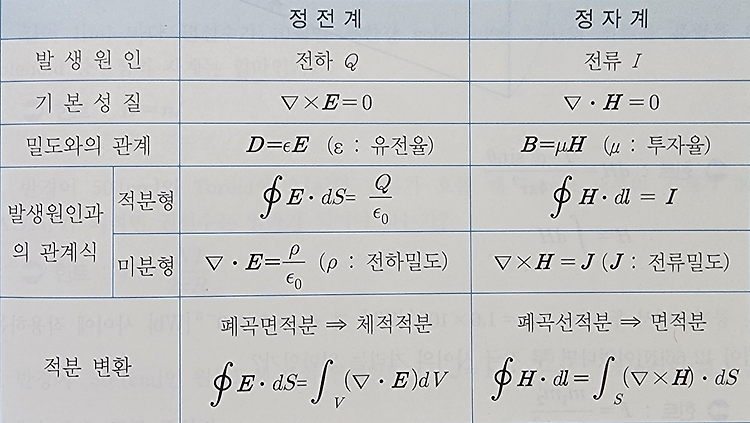 정전계 정자계
발생원인 전하 Q 전류 I
기본성질 ∇×E=0 ∇·H=0
밀도와의 관계 D=ϵE (ε : 유전율) B=μH (μ : 투자율)
발생원인과의 관계식 적분형 ∮E·dS= Q/ϵ₀ ∮H·dl = I
미분형 ∇·E=ρ/ϵ₀ (ρ : 전하밀도) ∇×H=J (J : 전류밀도)
적분 변환 폐곡면적분 ⇒ 체적적분 폐곡선적분 ⇒ 면적분
∮E·dS=∫_V(∇·E)dV ∮H·dl=∫_S(∇×H)·dS